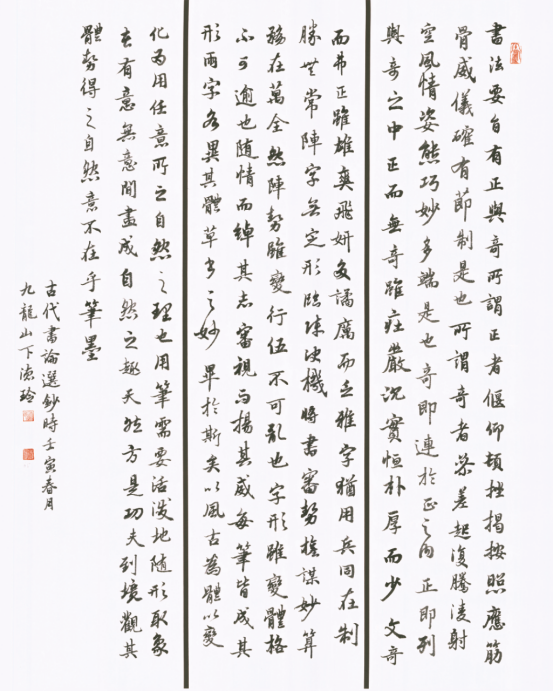 書法要旨有正與奇所謂正者偃仰頓挫揭按照應筋
骨威儀確有節制是也所謂奇者參差起復騰淩射
空風情姿態巧妙多端是也奇即連於正之內正即列
與奇之中正而無奇雖莊嚴沉實恒朴厚而少文奇
而弗正雖雄爽飛妍多譎厲而乏雅字猶用兵同在制
勝無常陣字無定形臨陳決機將書審勢權謀妙算
務在萬全然陣勢雖變行伍不可亂也字形雖變體格
不可逾也随情而綽其志審視而揚其威每筆皆成其
形兩字各異其體草書之妙畢於斯矣以風古為體以變
化為用任意所之自然之理也用筆需要活潑地随形取象
在有意無意間盡成自然之趣天然方是功夫到境觀其
體勢得之自然意不在乎筆墨
古代書論選鈔時壬寅春月
九龍山下德玲